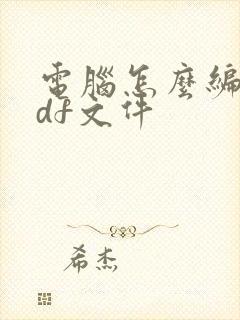 電腦怎麼編
df文件
希杰